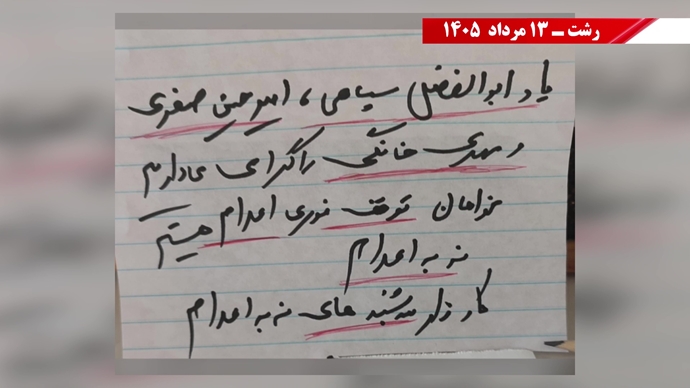 رشت ـ ۱۳ مرداد ۱۴۰۵
یاد ابوالفضل سیاحی، امیرحسین صفری
و مهدی خانکی را گرامی میداریم
خواهان توقف فوری اعدام هستیم
نه به اعدام
کارزار سه‌شنبه های نه به اعدام